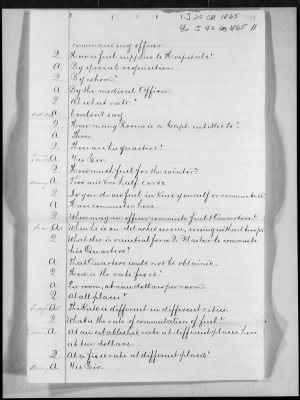 J 20 CB 1865
J 42 CB 1865
commanding officer
Q How is fuel supplied to Hospitals?
A By special requisition.
Q By whom?
A By the medical Officer.
Q At what rate?
A Couldn't say
Q How many Rooms is a Capt. entitled to?
A Three
Q Those are his quarters?
A Yes Sir.
Q How much fuel for the winter?
A Two and one half cords
Q Do you draw fuel in kind yourself or commute it
A I have commuted here.
Q When may an officer commute fuel & Quarters?
A When he is on det ached serv serving without troops
Q What is essential for a Q. Master to commute
his Quarters?
A That Quarters could not be obtained.
Q How is the rate fixed?
A Per room, at nine dollars per room.
Q At all places?
A The Rate is different in different cities.
Q What is the rate of commutation of fuel?
A At an established rate at different places
at dollars.
Q At a fixed rate at different places?
A Yes Sir.